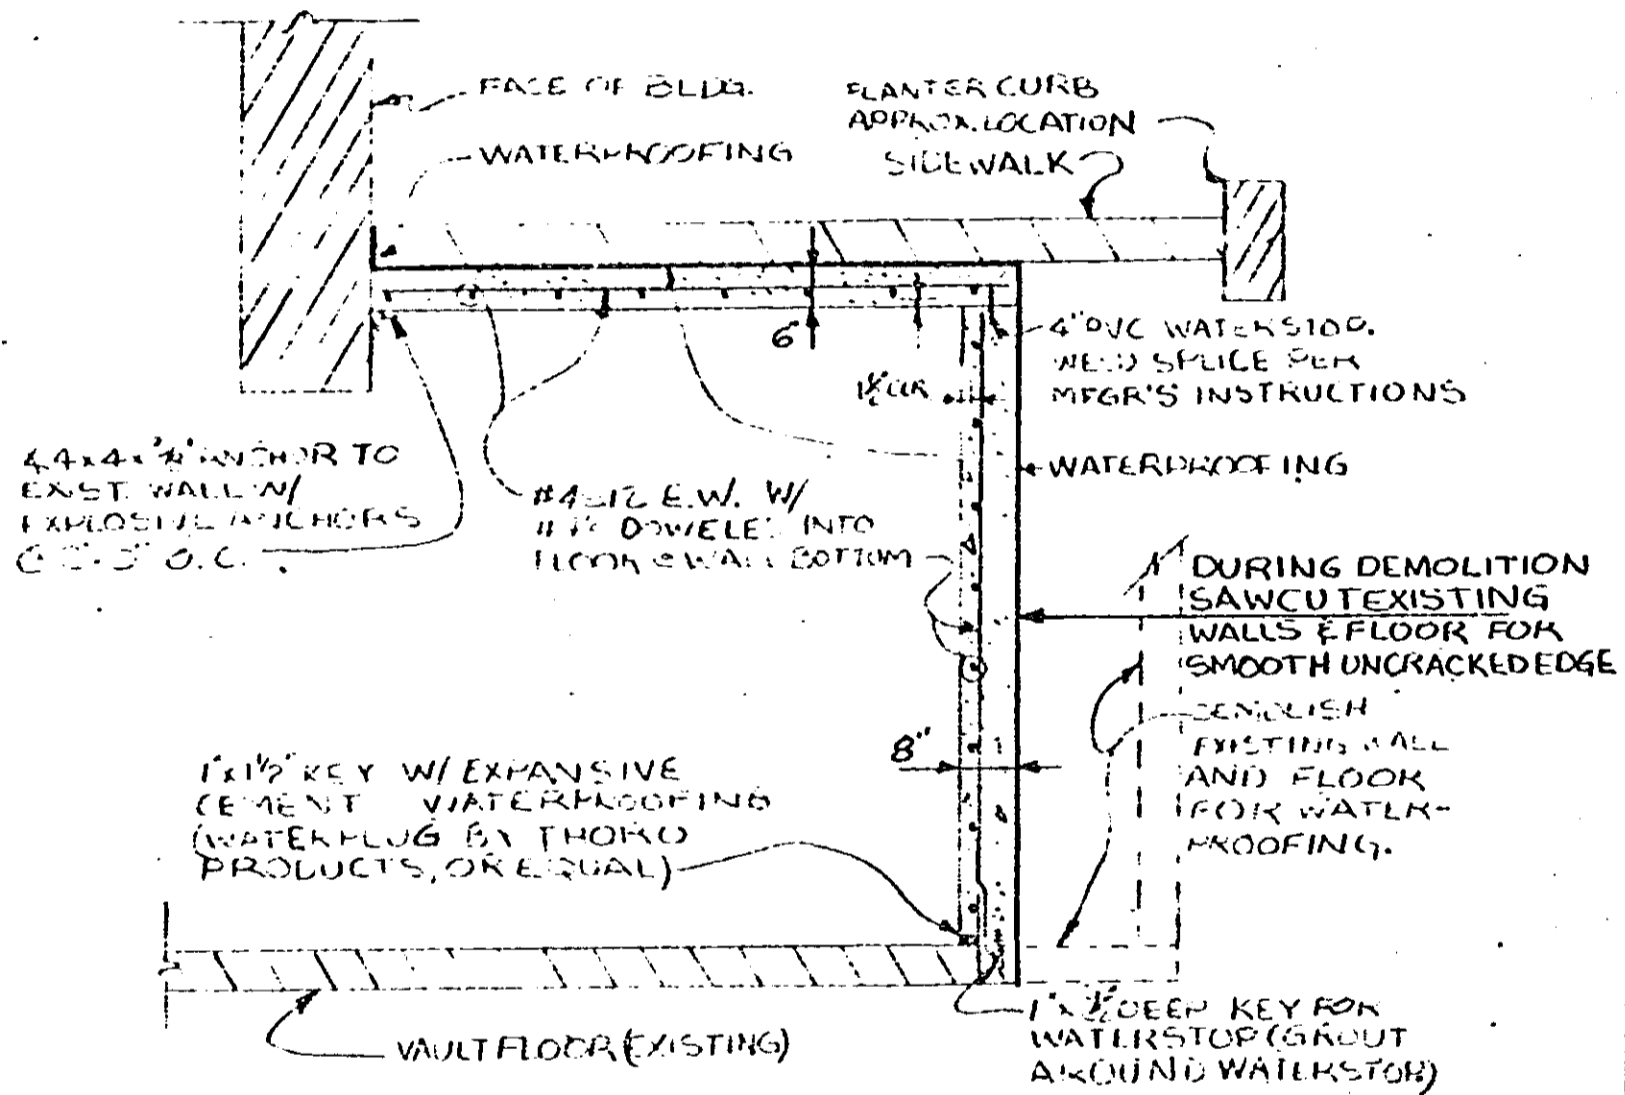 FACE OF BLDG.
WATERPROOFING
PLANTER CURB
APPROX. LOCATION
SIDEWALK
6"
1½ CLR
4" PVC WATERSTOP.
WELD SPLICE PER
MFGR'S INSTRUCTIONS
WATERPROOFING
ANCHOR TO
EXIST. WALL W/
EXPLOSIVE ANCHORS
O.C.
#4 12 E.W. W/
DOWELED INTO
FLOOR & WALL BOTTOM
DURING DEMOLITION
SAWCUT EXISTING
WALLS & FLOOR FOR
SMOOTH UNCRACKED EDGE
DEMOLISH
EXISTING WALL
AND FLOOR
FOR WATER-
PROOFING.
8"
1"x1½" KEY W/ EXPANSIVE
CEMENT WATERPROOFING
(WATERPLUG BY THORO
PRODUCTS, OR EQUAL)
VAULT FLOOR (EXISTING)
DEEP KEY FOR
WATERSTOP (GROUT
AROUND WATERSTOP)